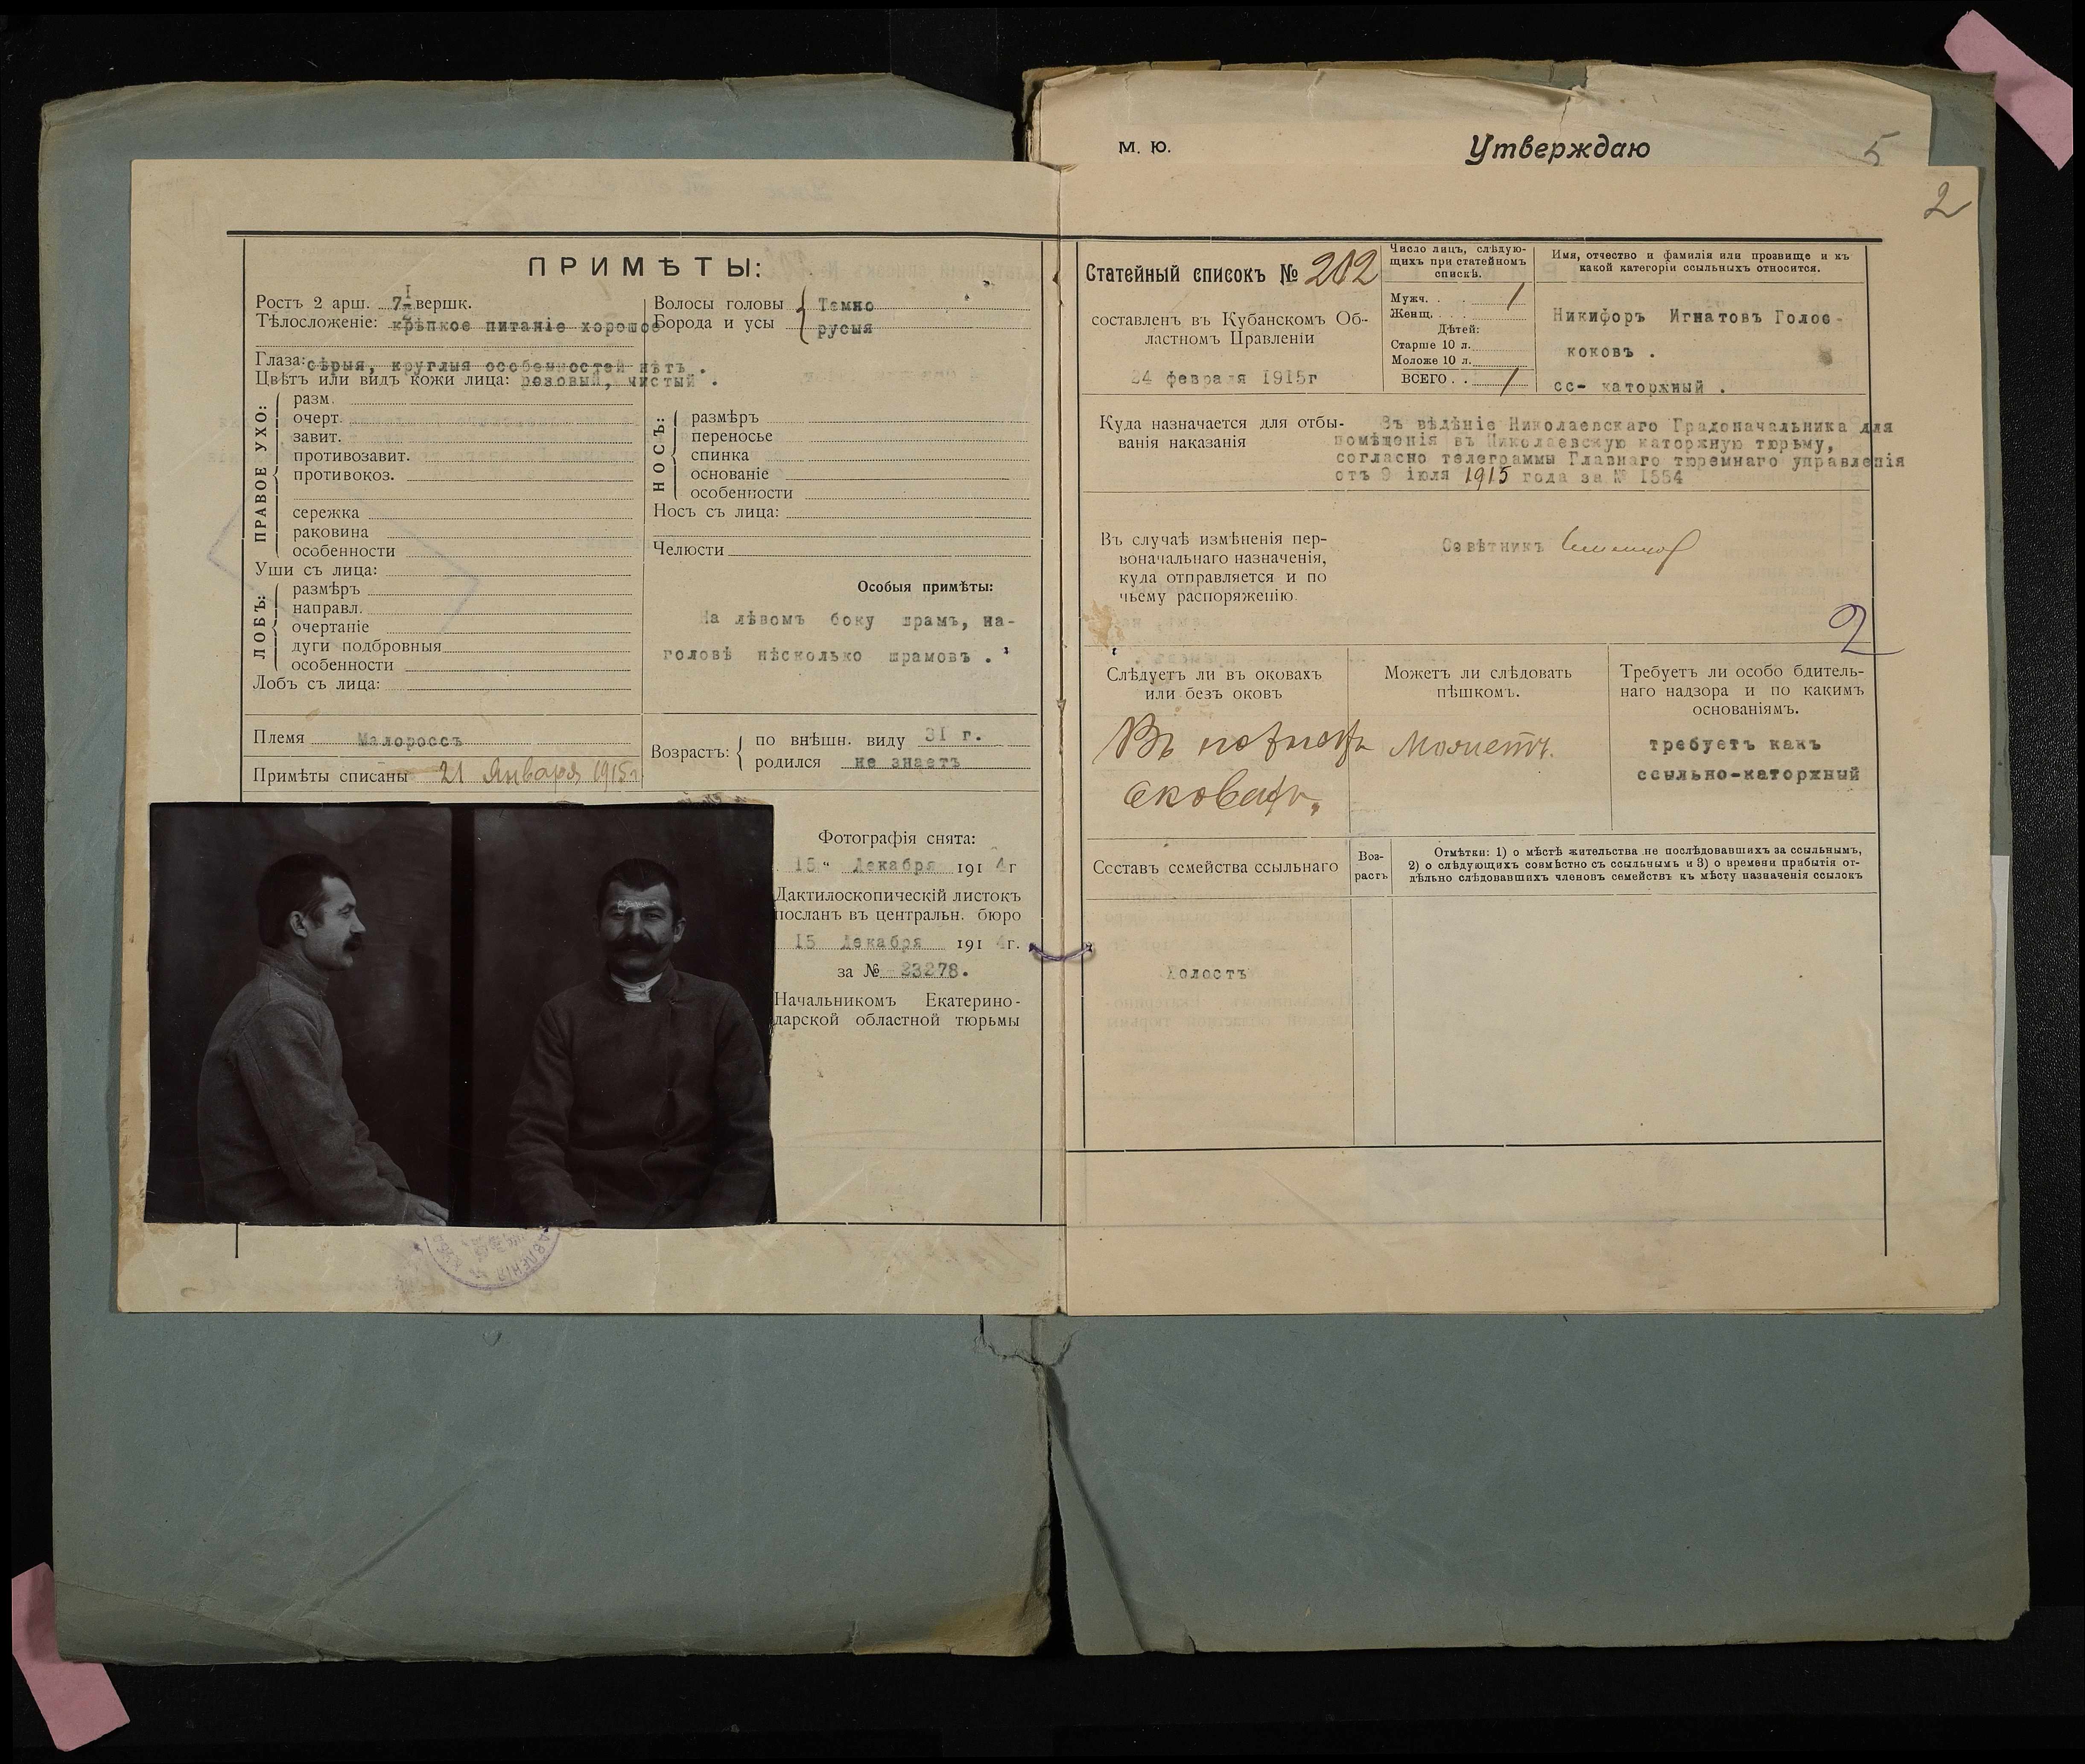 М. Ю.
Утверждаю
5
2
ПРИМѢТЫ:
Ростъ 2 арш. 7 1/2 вершк.
Тѣлосложеніе: крѣпкое питаніе хорошое
Глаза: сѣрыя, круглыя особенностей нѣтъ .
Цвѣтъ или видъ кожи лица: розовый, чистый .
Волосы головы Темно
Борода и усы русыя
ПРАВОЕ УХО:
разм.
очерт.
завит.
противозавит.
противокоз.
сережка
раковина
особенности
Уши съ лица:
ЛОБЪ:
размѣръ
направл.
очертаніе
дуги подбровныя
особенности
Лобъ съ лица:
НОСЪ:
размѣръ
переносье
спинка
основаніе
особенности
Носъ съ лица:
Челюсти
Особыя примѣты:
На лѣвомъ боку шрамъ, на-
головѣ нѣсколько шрамовъ .
Племя Малороссъ
Примѣты списаны 21 Января 1915г.
Возрастъ:
по внѣшн. виду 31 г.
родился не знаетъ
Фотографія снята:
15 " Декабря 191 4г
Дактилоскопическій листокъ
посланъ въ центральн. бюро
15 Декабря 191 4г.
за № 23278.
Начальникомъ Екатерино-
дарской областной тюрьмы
Статейный списокъ № 202
составленъ въ Кубанскомъ Об-
ластномъ Правленіи
24 февраля 1915г
Число лицъ, слѣдую-
щихъ при статейномъ
спискѣ.
Мужч. . . 1
Женщ. . . .
Дѣтей:
Старше 10 л.
Моложе 10 л.
ВСЕГО . . 1
Имя, отчество и фамилія или прозвище и къ
какой категоріи ссыльныхъ относится.
Никифоръ Игнатовъ Голов-
коковъ .
сс- каторжный .
Куда назначается для отбы-
ванія наказанія
Въ вѣдѣніе Николаевскаго Градоначальника для
помѣщенія въ Николаевскую каторжную тюрьму,
согласно телеграммы Главнаго тюремнаго управленія
отъ 9 іюля 1915 года за № 1554
Въ случаѣ измѣненія пер-
воначальнаго назначенія,
куда отправляется и по
чьему распоряженію.
Совѣтникъ
2
Слѣдуетъ ли въ оковахъ
или безъ оковъ
Въ ножныхъ
оковахъ.
Можетъ ли слѣдовать
пѣшкомъ.
Можетъ.
Требуетъ ли особо бдитель-
наго надзора и по какимъ
основаніямъ.
требуетъ какъ
ссыльно-каторжный
Составъ семейства ссыльнаго
Воз-
растъ
Отмѣтки: 1) о мѣстѣ жительства не послѣдовавшихъ за ссыльнымъ,
2) о слѣдующихъ совмѣстно съ ссыльнымъ и 3) о времени прибытія от-
дѣльно слѣдовавшихъ членовъ семействъ къ мѣсту назначенія ссылокъ
Холостъ